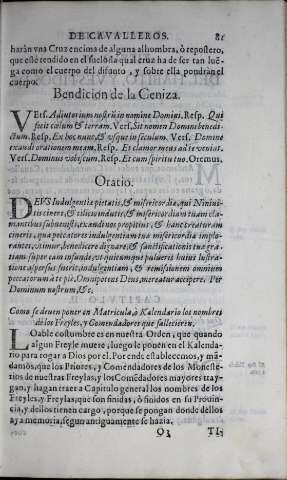 DE CAVALLEROS. 81
haràn vna Cruz encima de alguna alhombra, ò repostero,
que estè tendido en el suelo: la qual cruz ha de ser tan lue
ga como el cuerpo del difunto, y sobre ella pondràn el
cuerpo.
Bendicion de la Ceniza.
VErs. Adiutorium nostrũ in nomine Domini. Resp. Qui
fecit cœlum & terram. Vers. Sit nomen Domini benedi-
ctum. Resp. Ex hoc nunc, & vsque in sæculum. Vers. Domine
exaudi orationem meam. Resp. Et clamor meus ad te veniat.
Vers. Dominus vobiscum. Resp. Et cum spiritu tuo. Oremus.
Oratio.
DEVS Indulgentiæ pietatis, & misericordiæ, qui Niniui-
tis cinere, & cilicio indutis, & misericordiam tuam cla-
mantibus subuenisti, exaudi nos propitius, & hanc creaturam
cineris, qua peccatores indulgentiam tuæ misericordiæ implo-
rantes, vtimur, benedicere dignare, & sanctificationis tuæ gra-
tiam super eam infunde, vt quicumque pulueris huius lustra-
tione aspersus fuerit, indulgentiam, & remissionem omnium
peccatorum à te piè, Omnipotens Deus, mereatur accipere. Per
Dominum nostrum, &c.
CAPITVLO II.
Como se deuen poner en Matricula, ò Kalendario los nombres
de los Freyles, y Comendadores que fallecieren.
LOable costumbre es en nuestra Orden, que quando
algun Freyle muere, luego le ponen en el Kalenda-
rio para rogar a Dios por el. Por ende establecemos, y mã-
damos, que los Priores, y Comendadores de los Moneste-
rios de nuestras Freylas, y los Comẽdadores mayores tray-
gan, y hagan traer a Capitulo general los nombres de los
Freyles, y Freylas, que son finidas, ò finidos en su Prouin-
cia, y dellos tienen cargo, porque se pongan donde dellos
aya memoria, segun antiguamente se hazia.
Q3 TI-